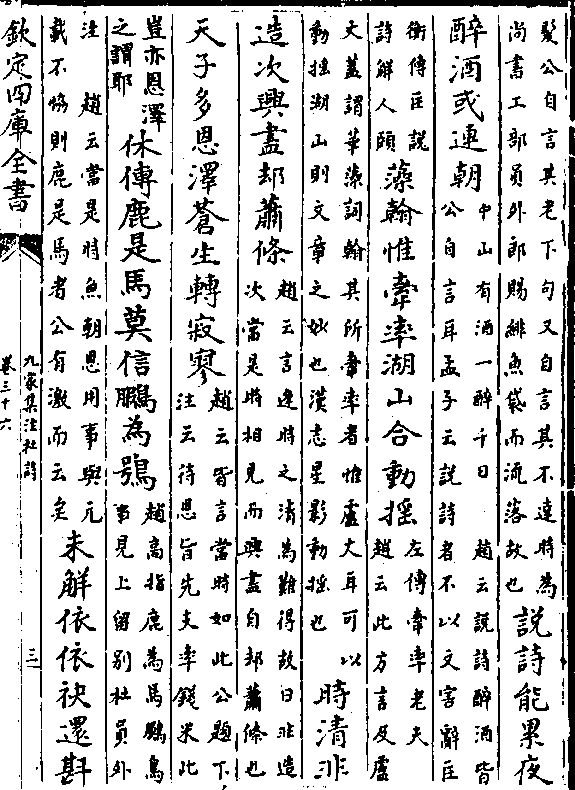 髮公自言其老下句又自言其不達時為
尚書工部員外郎賜緋魚袋而流落故也
說詩能累夜
醉酒或連朝
中山有酒一醉千日 趙云說詩醉酒皆
公自言耳孟子云說詩者不以文害辭匡
衡傳匡說
詩解人頤
藻翰惟牽率湖山合動搖
左傳牽率老夫
趙云此方言及盧
大蓋謂華藻詞翰其所牽率者惟盧大耳可以
動搖湖山則文章之妙也漢志星影動搖也
時清非
造次興盡却蕭條
趙云言逢時之清為難得故曰非造
次當是時相見而興盡自却蕭條也
天子多恩澤蒼生轉寂寥
趙云皆言當時如此公題下
注云待恩旨先支率錢米此
豈亦恩澤
之謂耶
休傳鹿是馬莫信鵬為鴞
趙高指鹿為馬鵬鳥
事見上留別杜員外
注 趙云當是時魚朝恩用事與元
載不協則鹿是馬者公有激而云矣
未解依依袂還斟
欽定四庫全書
九家集注杜詩
卷三十六
三